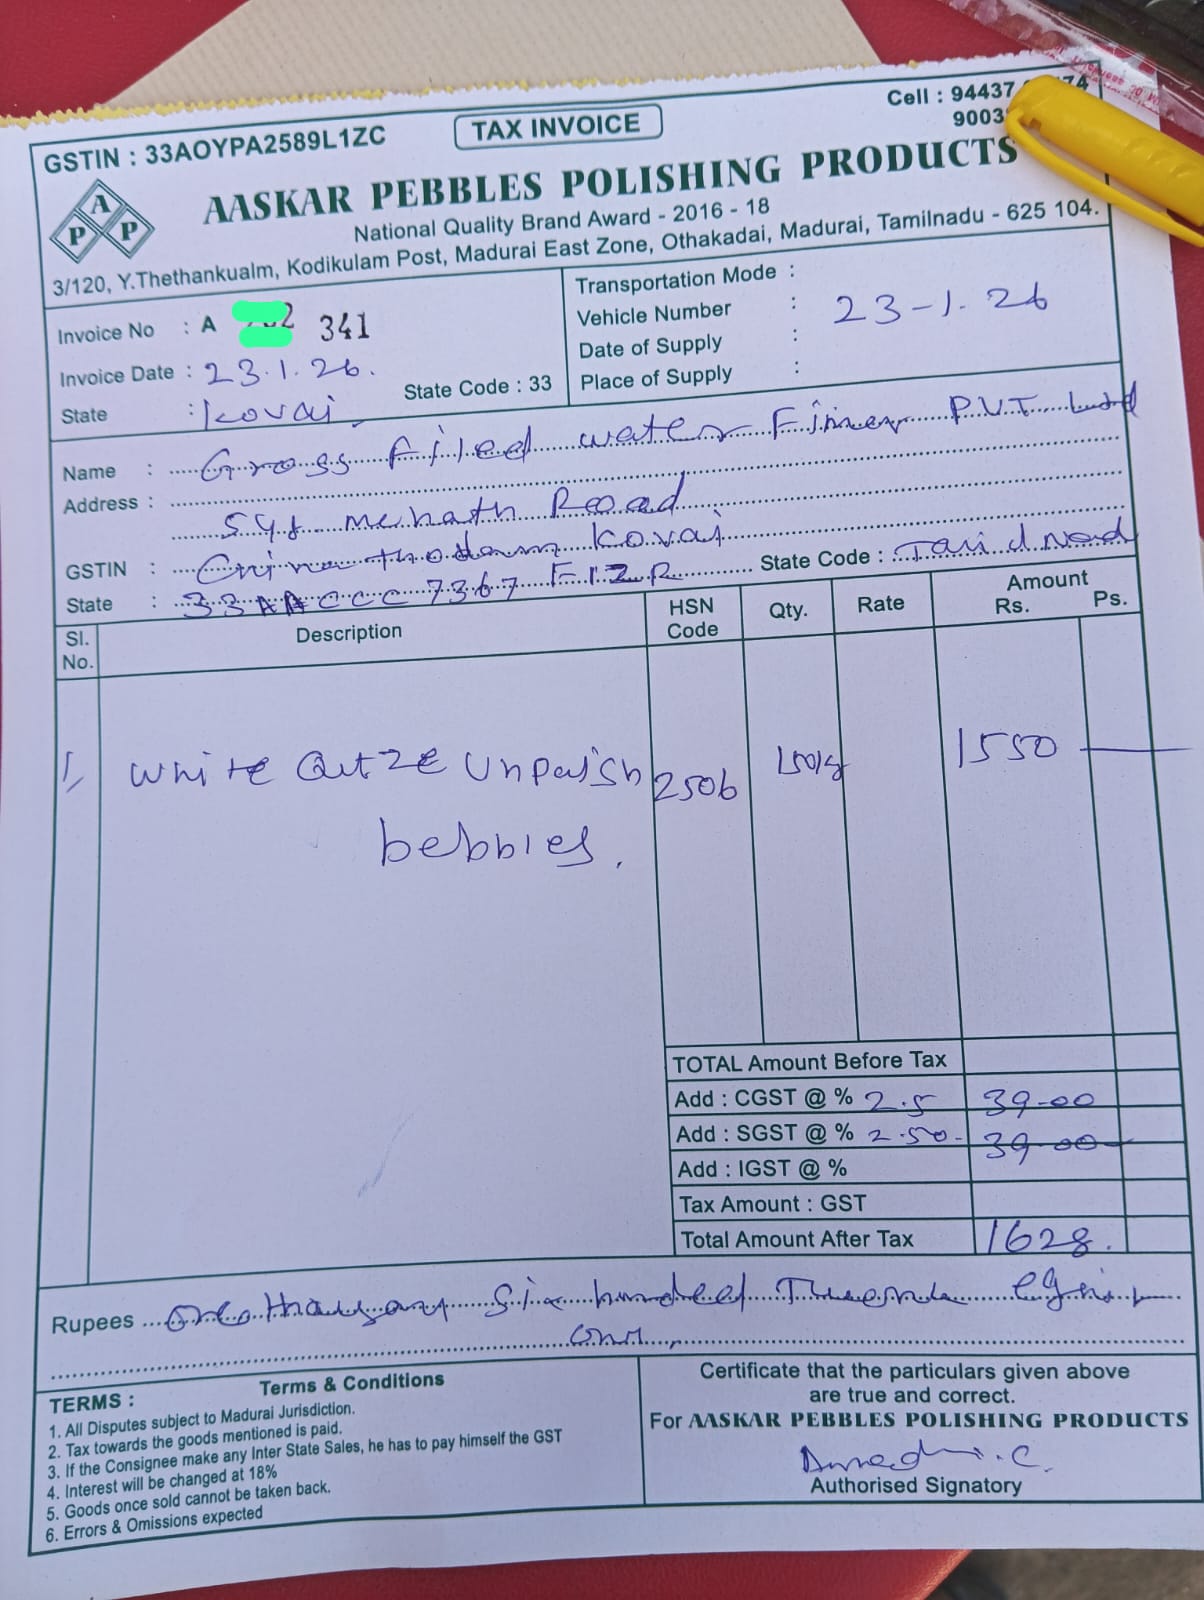 GSTIN : 33AOYPA2589L1ZC
TAX INVOICE
Cell : 94437
9003
A P P
AASKAR PEBBLES POLISHING PRODUCTS
National Quality Brand Award - 2016 - 18
3/120, Y.Thethankualm, Kodikulam Post, Madurai East Zone, Othakadai, Madurai, Tamilnadu - 625 104.
Invoice No : A 341
Invoice Date : 23.1.26.
State : Kovai
State Code : 33
Transportation Mode :
Vehicle Number : 23-1.26
Date of Supply :
Place of Supply :
Name : Gross Filed water Finer PVT
Address :
Road
GSTIN : Kovai
State Code :
State : 33AACCC7367F1ZR
Sl. No.
Description
HSN Code
Qty.
Rate
Amount
Rs. Ps.
1, white Qutze Unpaish 2506 150kg 1550
bebbles.
TOTAL Amount Before Tax
Add : CGST @ % 2.5 39-00
Add : SGST @ % 2.50- 39-00
Add : IGST @ %
Tax Amount : GST
Total Amount After Tax 1628.
Rupees Six hundred
Terms & Conditions
TERMS :
1. All Disputes subject to Madurai Jurisdiction.
2. Tax towards the goods mentioned is paid.
3. If the Consignee make any Inter State Sales, he has to pay himself the GST
4. Interest will be changed at 18%
5. Goods once sold cannot be taken back.
6. Errors & Omissions expected
Certificate that the particulars given above
are true and correct.
For AASKAR PEBBLES POLISHING PRODUCTS
Authorised Signatory